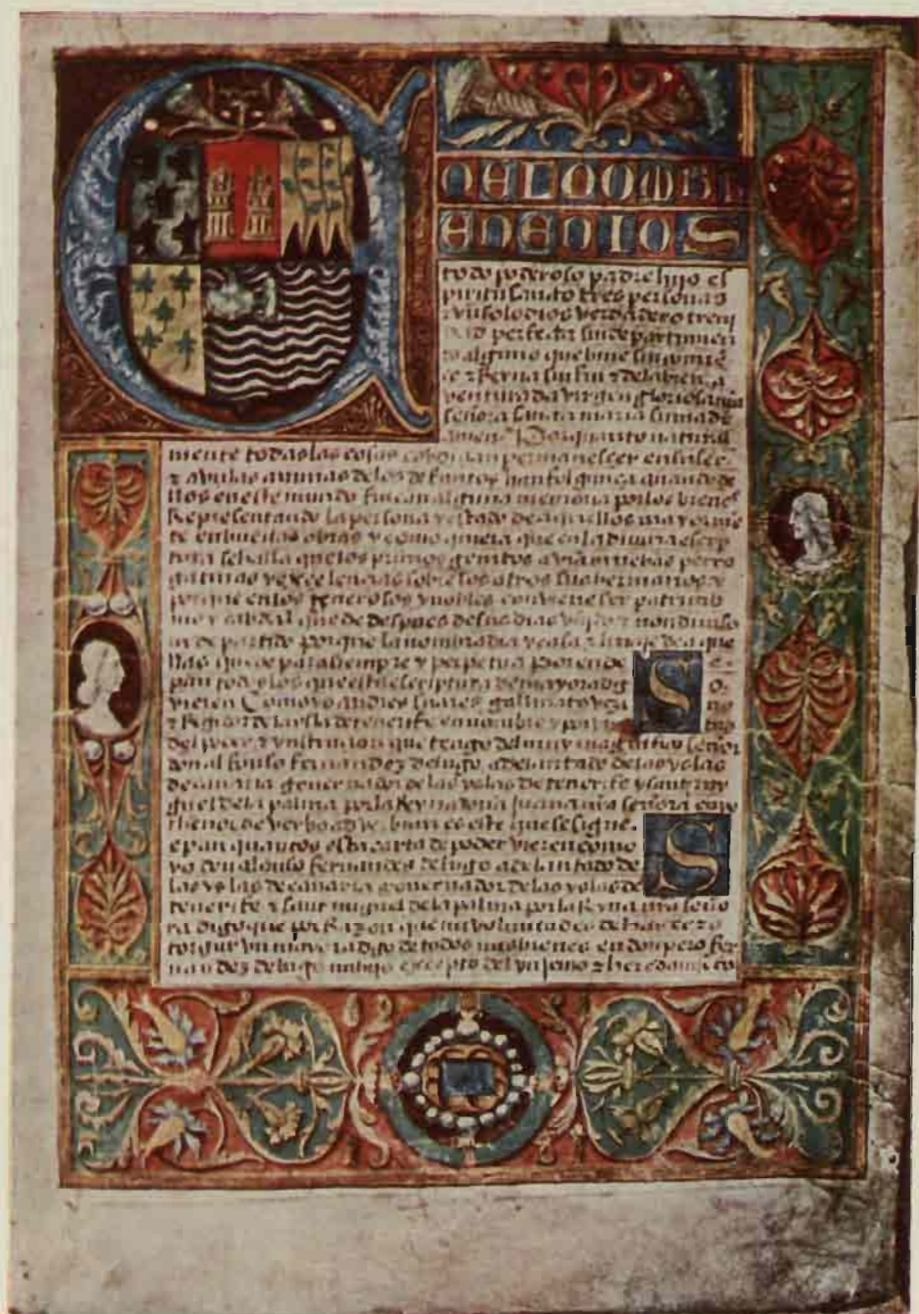 E
N EL NOMBR
E DE DIOS
todo poderoso padre hijo es
piritu santo tres personas
z vn solo dios verdadero treni
dad perfeta sin departimien
to alguno que biue sin comiẽ
ço z Reyna sin fin z dela bien a
venturada virgen gloriosa nr̃a
señora santa maria su madre
amen Por quanto natural
mente todas las cosas cobdiçian permanesçer en su ser
z avn las animas delos defuntos han folgança quando de
llos en este mundo fincan alguna memoria por los bienes
Representando la persona y estado de aquellos mayorme
te en buenas obras y como quiera que en la diuina escrip
tura se halla que los primos genitos avian muchas perro
gatiuas y exçelençias sobre los otros sus hermanos y
porque en los generosos y nobles conviene ser patrimo
nio y cabdal que de despues de sus dias vnjdo z non diuiso
nj departido porque la nombradia y casa z linaje de aque
llas quede para siempre y perpetua Porende Se
pan todos los que esta escriptura de mayoradgo
vieren Como yo andres suares gallinato vezino
z Regidor dela isla de tenerife en nonbre y por virtud
del poder z ynstruçion que trago del muy magnifico señor
don alfonso fernandez de lugo adelantado delas yslas
de canaria governador delas yslas de tenerife y sant my
guel dela palma por la Reyna doña juana nr̃a señora cuyo
thenor de verbo ad verbum es este que se sigue. S
epan quantos esta carta de poder vieren como
yo don alonso fernandes de lugo adelantado de
las yslas de canaria governador delas yslas de
tenerife z sant miguel dela palma por la Reyna nr̃a seño
ra digo que por Razon que mi voluntad es de hazer z o
torgar vn mayoradgo de todos mis bienes en don pero fer
nandez de lugo mi hijo exçepto del